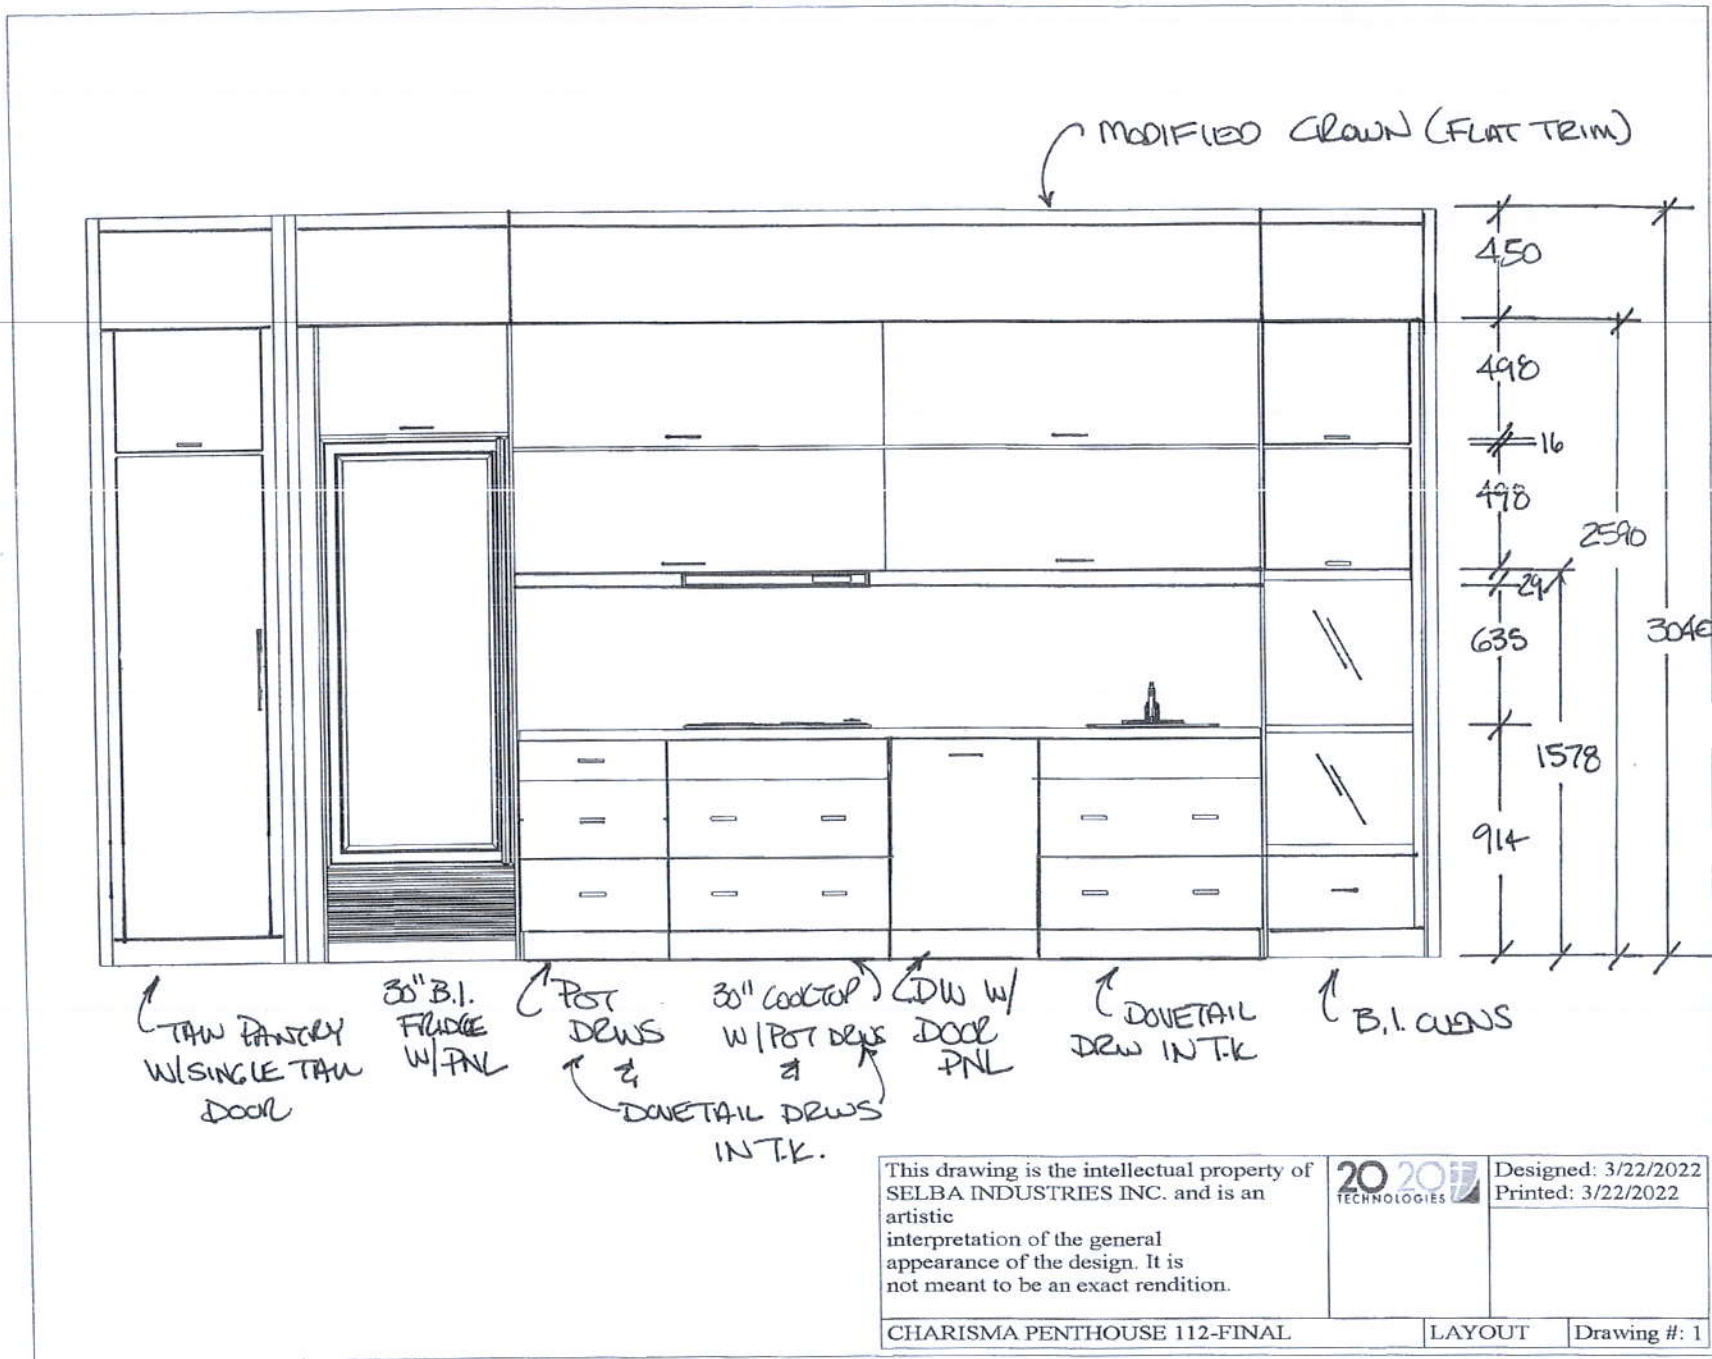 MODIFIED CROWN (FLAT TRIM)
450
498
16
498
2590
29
635
1578
914
TALL PANTRY
W/SINGLE TALL
DOOR
30" B.I.
FRIDGE
W/PNL
POT
DRWS
&
30" COOKTOP
W/POT DRWS
&
DOVETAIL DRWS
IN T.K.
DW W/
DOOR
PNL
DOVETAIL
DRW IN T.K
B.I. OVENS
This drawing is the intellectual property of
SELBA INDUSTRIES INC. and is an
artistic
interpretation of the general
appearance of the design. It is
not meant to be an exact rendition.
20 20
TECHNOLOGIES
Designed: 3/22/2022
Printed: 3/22/2022
CHARISMA PENTHOUSE 112-FINAL
LAYOUT
Drawing #: 1